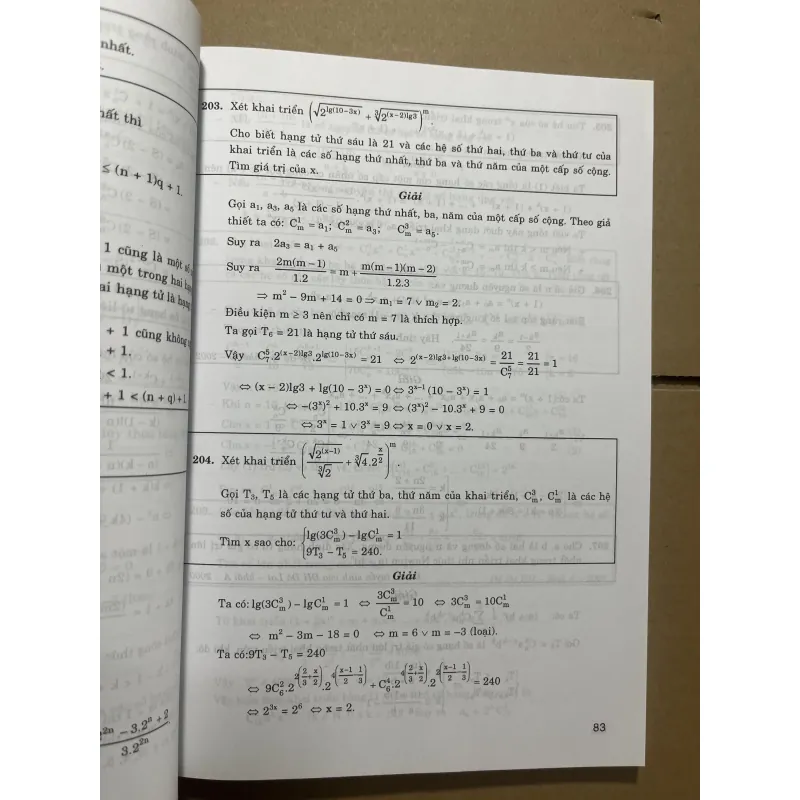 nhất.
hất thì
≤ (n + 1)q + 1.
1 cũng là một số
một trong hai
ai hạng tử là hạng
+ 1 cũng không
+ 1.
< 1.
+ 1 < (n + q)+1
2n – 3.2ⁿ + 2
3.2²ⁿ
203. Xét khai triển (√2^(lg(10–3x)) + ⁵√2^((x–2)lg3))^m
Cho biết hạng tử thứ sáu là 21 và các hệ số thứ hai, thứ ba và thứ tư của
khai triển là các số hạng thứ nhất, thứ ba và thứ năm của một cấp số cộng.
Tìm giá trị của x.
Giải
Gọi a₁, a₃, a₅ là các số hạng thứ nhất, ba, năm của một cấp số cộng. Theo giả
thiết ta có: C¹ₘ = a₁; C²ₘ = a₃; C³ₘ = a₅.
Suy ra 2a₃ = a₁ + a₅
Suy ra 2m(m – 1)/1.2 = m + m(m – 1)(m – 2)/1.2.3
⇒ m² – 9m + 14 = 0 ⇒ m₁ = 7 ∨ m₂ = 2.
Điều kiện m ≥ 3 nên chỉ có m = 7 là thích hợp.
Ta gọi T₆ = 21 là hạng tử thứ sáu.
Vậy C⁵₇.2^((x–2)lg3).2^(lg(10–3ˣ)) = 21 ⇔ 2^((x–2)lg3+lg(10–3ˣ)) = 21/C⁵₇ = 21/21 = 1
⇔ (x – 2)lg3 + lg(10 – 3ˣ) = 0 ⇔ 3ˣ⁻¹ (10 – 3ˣ) = 1
⇔ –(3ˣ)² + 10.3ˣ = 9 ⇔ (3ˣ)² – 10.3ˣ + 9 = 0
⇔ 3ˣ = 1 ∨ 3ˣ = 9 ⇔ x = 0 ∨ x = 2.
204. Xét khai triển (√2^(x–1)/³√2 + ³√4.2^(x/2))^m.
Gọi T₃, T₅ là các hạng tử thứ ba, thứ năm của khai triển, C³ₘ, C¹ₘ là các hệ
số của hạng tử thứ tư và thứ hai.
Tìm x sao cho: {lg(3C³ₘ) – lgC¹ₘ = 1
{9T₃ – T₅ = 240.
Giải
Ta có: lg(3C³ₘ) – lgC¹ₘ = 1 ⇔ 3C³ₘ/C¹ₘ = 10 ⇔ 3C³ₘ = 10C¹ₘ
⇔ m² – 3m – 18 = 0 ⇔ m = 6 ∨ m = –3 (loại).
Ta có:9T₃ – T₅ = 240
⇔ 9C²₆.2^(2(2/3+x/2)).2^(4(x–1/2–1/3)) + C⁴₆.2^(4(2/3+x/2)).2^(2(x–1/2–1/3)) = 240
⇔ 2³ˣ = 2⁶ ⇔ x = 2.
83